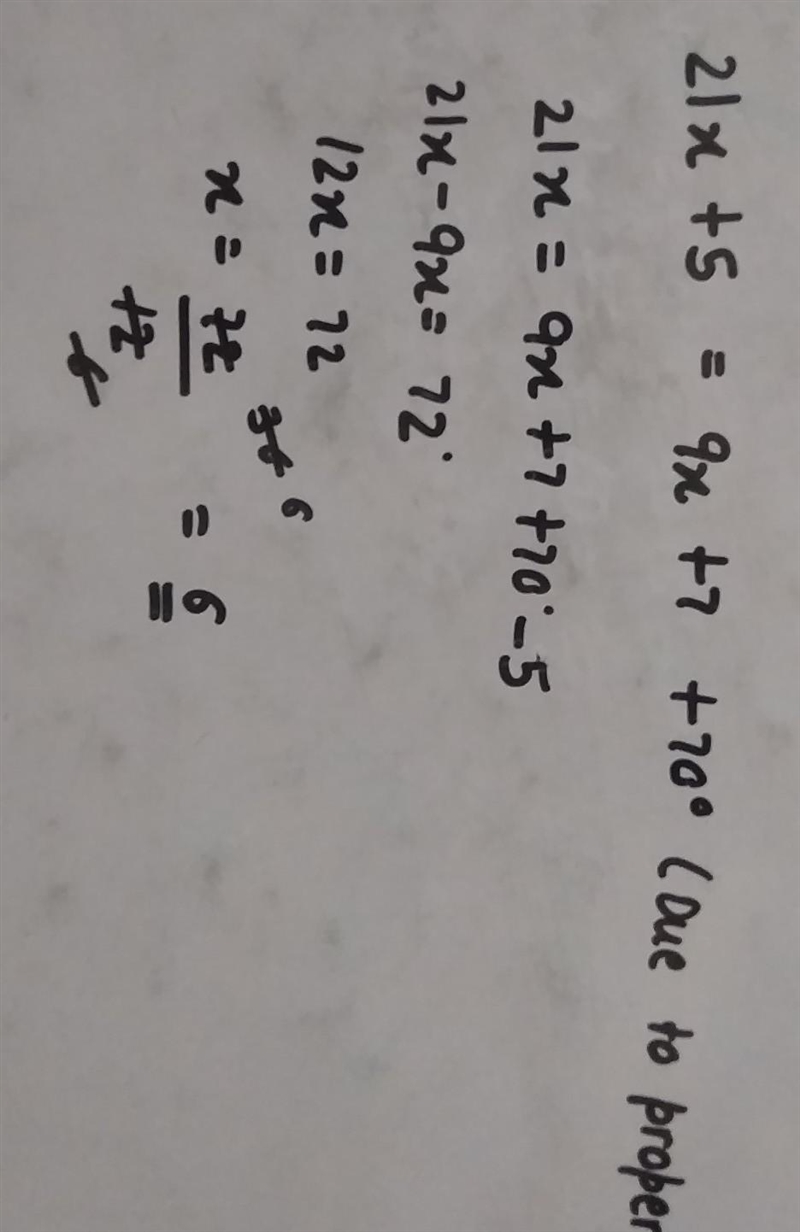 21x + 5 = 9x + 7 + 70° (Due to proper
21x = 9x + 7 + 70° - 5
21x - 9x = 72°
12x = 72
x = 72/12 36 6 6 = 6